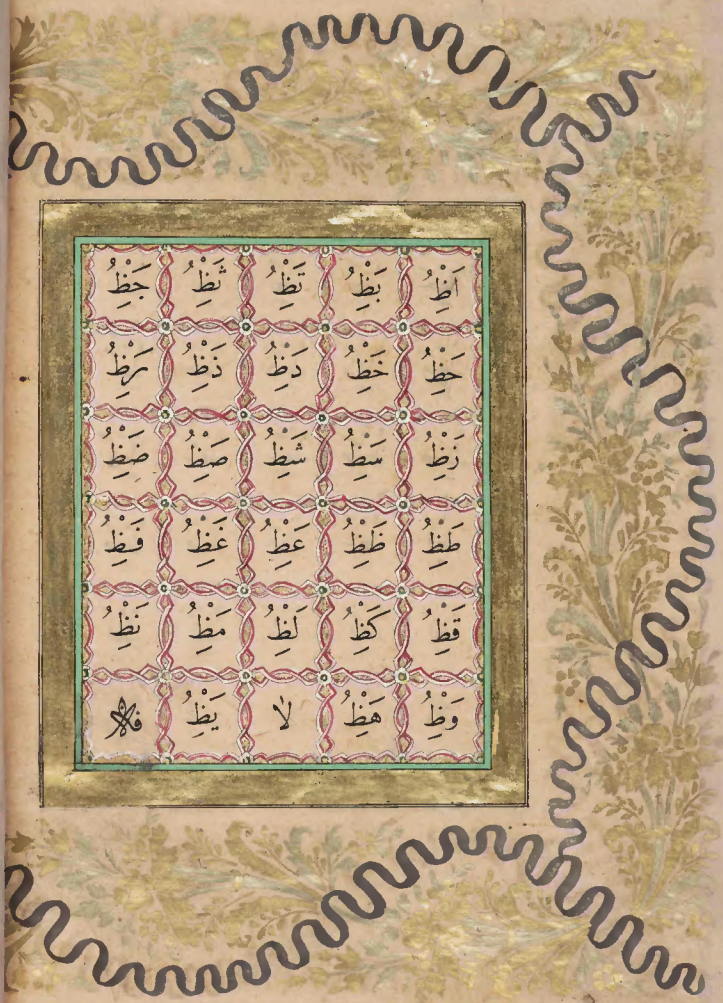 اَظِْ بَظِْ تَظِْ ثَظِْ جَظِْ
حَظِْ خَظِْ دَظِْ ذَظِْ رَظِْ
زَظِْ سَظِْ شَظِْ صَظِْ ضَظِْ
طَظِْ ظَظِْ عَظِْ غَظِْ فَظِْ
قَظِْ كَظِْ لَظِْ مَظِْ نَظِْ
وَظِْ هَظِْ لا يَظِْ